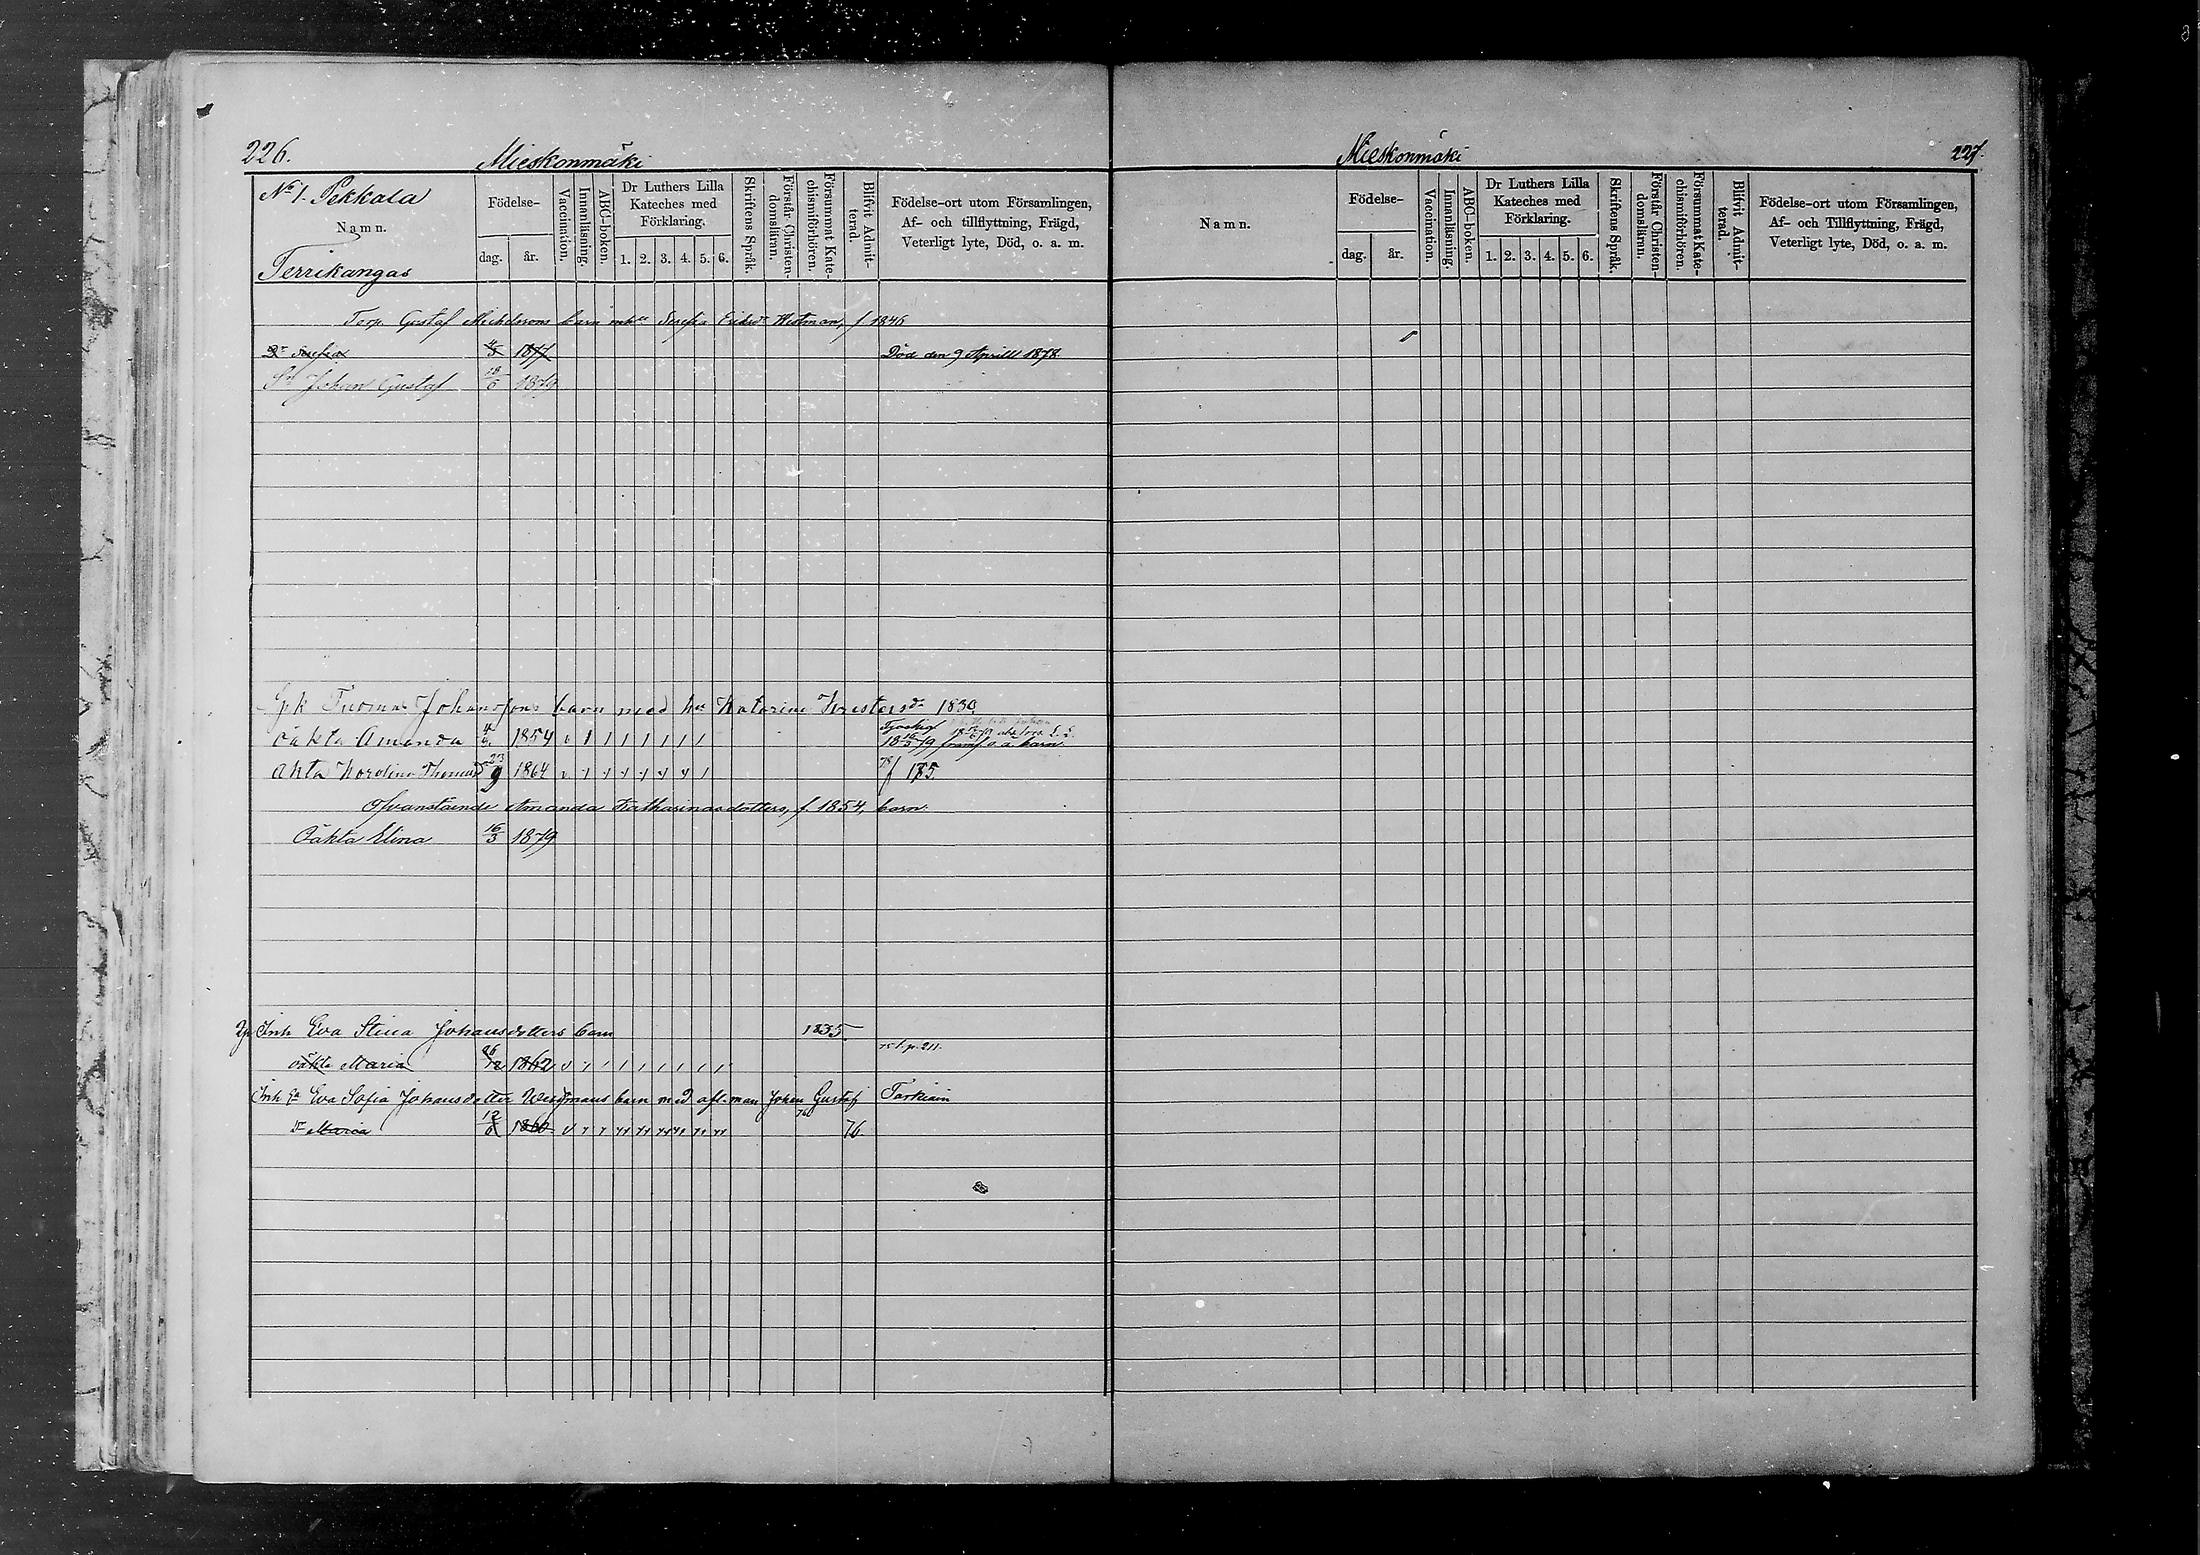 226.
Mieskonmäki
No 1. Pekkala
Namn.
Terrikangas
Födelse-
dag. år.
Vaccination.
Innanläsning.
ABC-boken.
Dr Luthers Lilla
Kateches med
Förklaring.
1. 2. 3. 4. 5. 6.
Skriftens Språk.
Förstår Christen-
domsläran.
Försummat Kate-
chismiförhören.
Blifvit Admit-
terad.
Födelse-ort utom Församlingen,
Af- och tillflyttning, Frägd,
Veterligt lyte, Död, o. a. m.
Torp. Gustaf Michelssons barn mhu Serefia Eriksdr Westman, f. 1846
Dr Serefia 1877 Död den 9 Aprill 1878.
Sn Johan Gustaf 18/6 1879
Spk Tuomas Johansson barn med hu Katarina Kristersdr 1830
oäkta Amanda 1854
18 16/3 79 framf. o.ä. barn
äkta Karolina Thomasdr 23/9 1864
Ofvanstående Amanda Katharinasdotters, f. 1854, barn.
Oäkta Elina 16/3 1879
Inh Eva Stina Johansdotters barn 1835
oäkta Maria 26/12 1862 75 t. p. 211.
Inh Ea Eva Sofia Johansdotter Westmans barn med afl. man Johan Gustaf Tarkiain
dr Maria 12/6 1860 76.
Mieskonmäki
227.
Namn.
Födelse-
dag. år.
Vaccination.
Innanläsning.
ABC-boken.
Dr Luthers Lilla
Kateches med
Förklaring.
1. 2. 3. 4. 5. 6.
Skriftens Språk.
Förstår Christen-
domsläran.
Försummat Kate-
chismiförhören.
Blifvit Admit-
terad.
Födelse-ort utom Församlingen,
Af- och Tillflyttning, Frägd,
Veterligt lyte, Död, o. a. m.